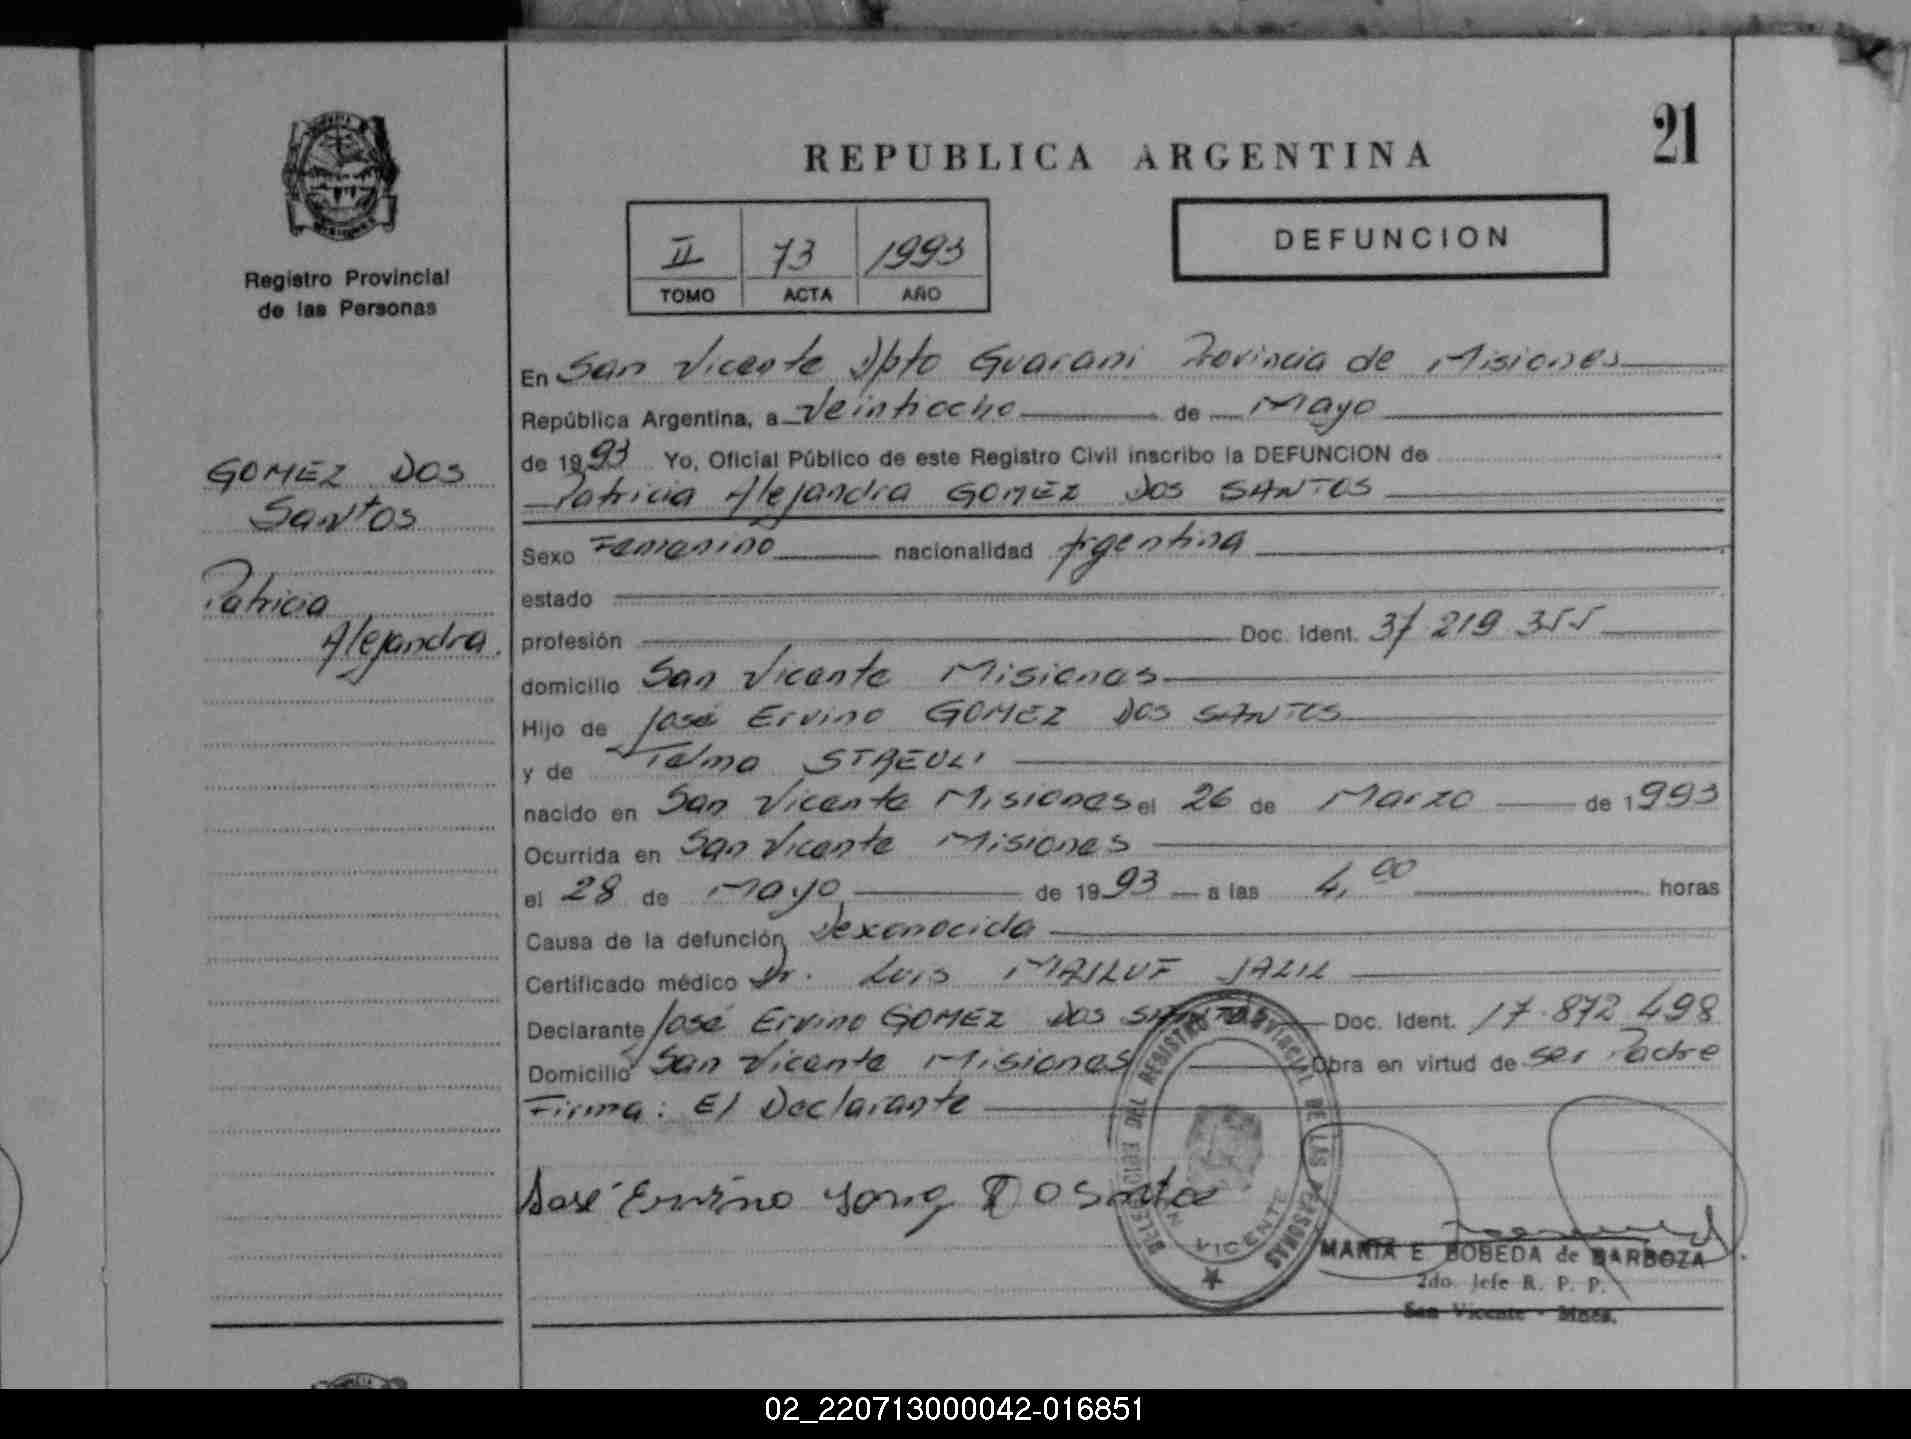 21
REPUBLICA ARGENTINA
Registro Provincial
de las Personas
II 73 1993
TOMO ACTA AÑO
DEFUNCION
GOMEZ DOS
Santos
Patricia
Alejandra.
En San Vicente Dpto Guarani Provincia de Misiones
República Argentina, a Veintiocho de Mayo
de 1993 Yo, Oficial Público de este Registro Civil inscribo la DEFUNCION de
Patricia Alejandra GOMEZ DOS SANTOS
Sexo Femenino nacionalidad Argentina
estado
profesión Doc. Ident. 37 219 355
domicilio San Vicente Misiones
Hijo de José Ervino GOMEZ DOS SANTOS
y de Telma STREULI
nacido en San Vicente Misiones el 26 de Marzo de 1993
Ocurrida en San Vicente Misiones
el 28 de Mayo de 1993 a las 4,00 horas
Causa de la defunción Desconocida
Certificado médico Dr. Luis JALIL
Declarante José Ervino GOMEZ DOS SANTOS Doc. Ident. 17.872 498
Domicilio San Vicente Misiones Obra en virtud de ser Padre
Firma: El Declarante
José Ervino
DELEGACION DEL REGISTRO PROVINCIAL DE LAS PERSONAS
SAN VICENTE
MARIA E. BOBEDA de BARBOZA
2do. Jefe R. P. P.
San Vicente - Mnes.
02_220713000042-016851